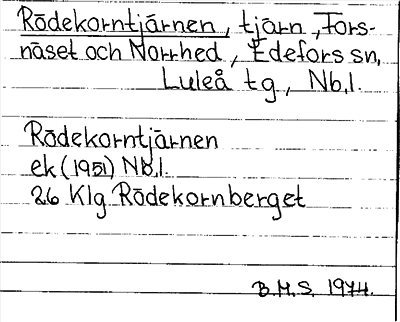 Rödekorntjärnen, tjärn, Fors-
näset och Norrhed, Edefors sn,
Luleå tg, Nb,l.
Rödekorntjärnen
ek (1951) Nb,l.
26 Klg Rödekornberget
B.M.S. 1974.